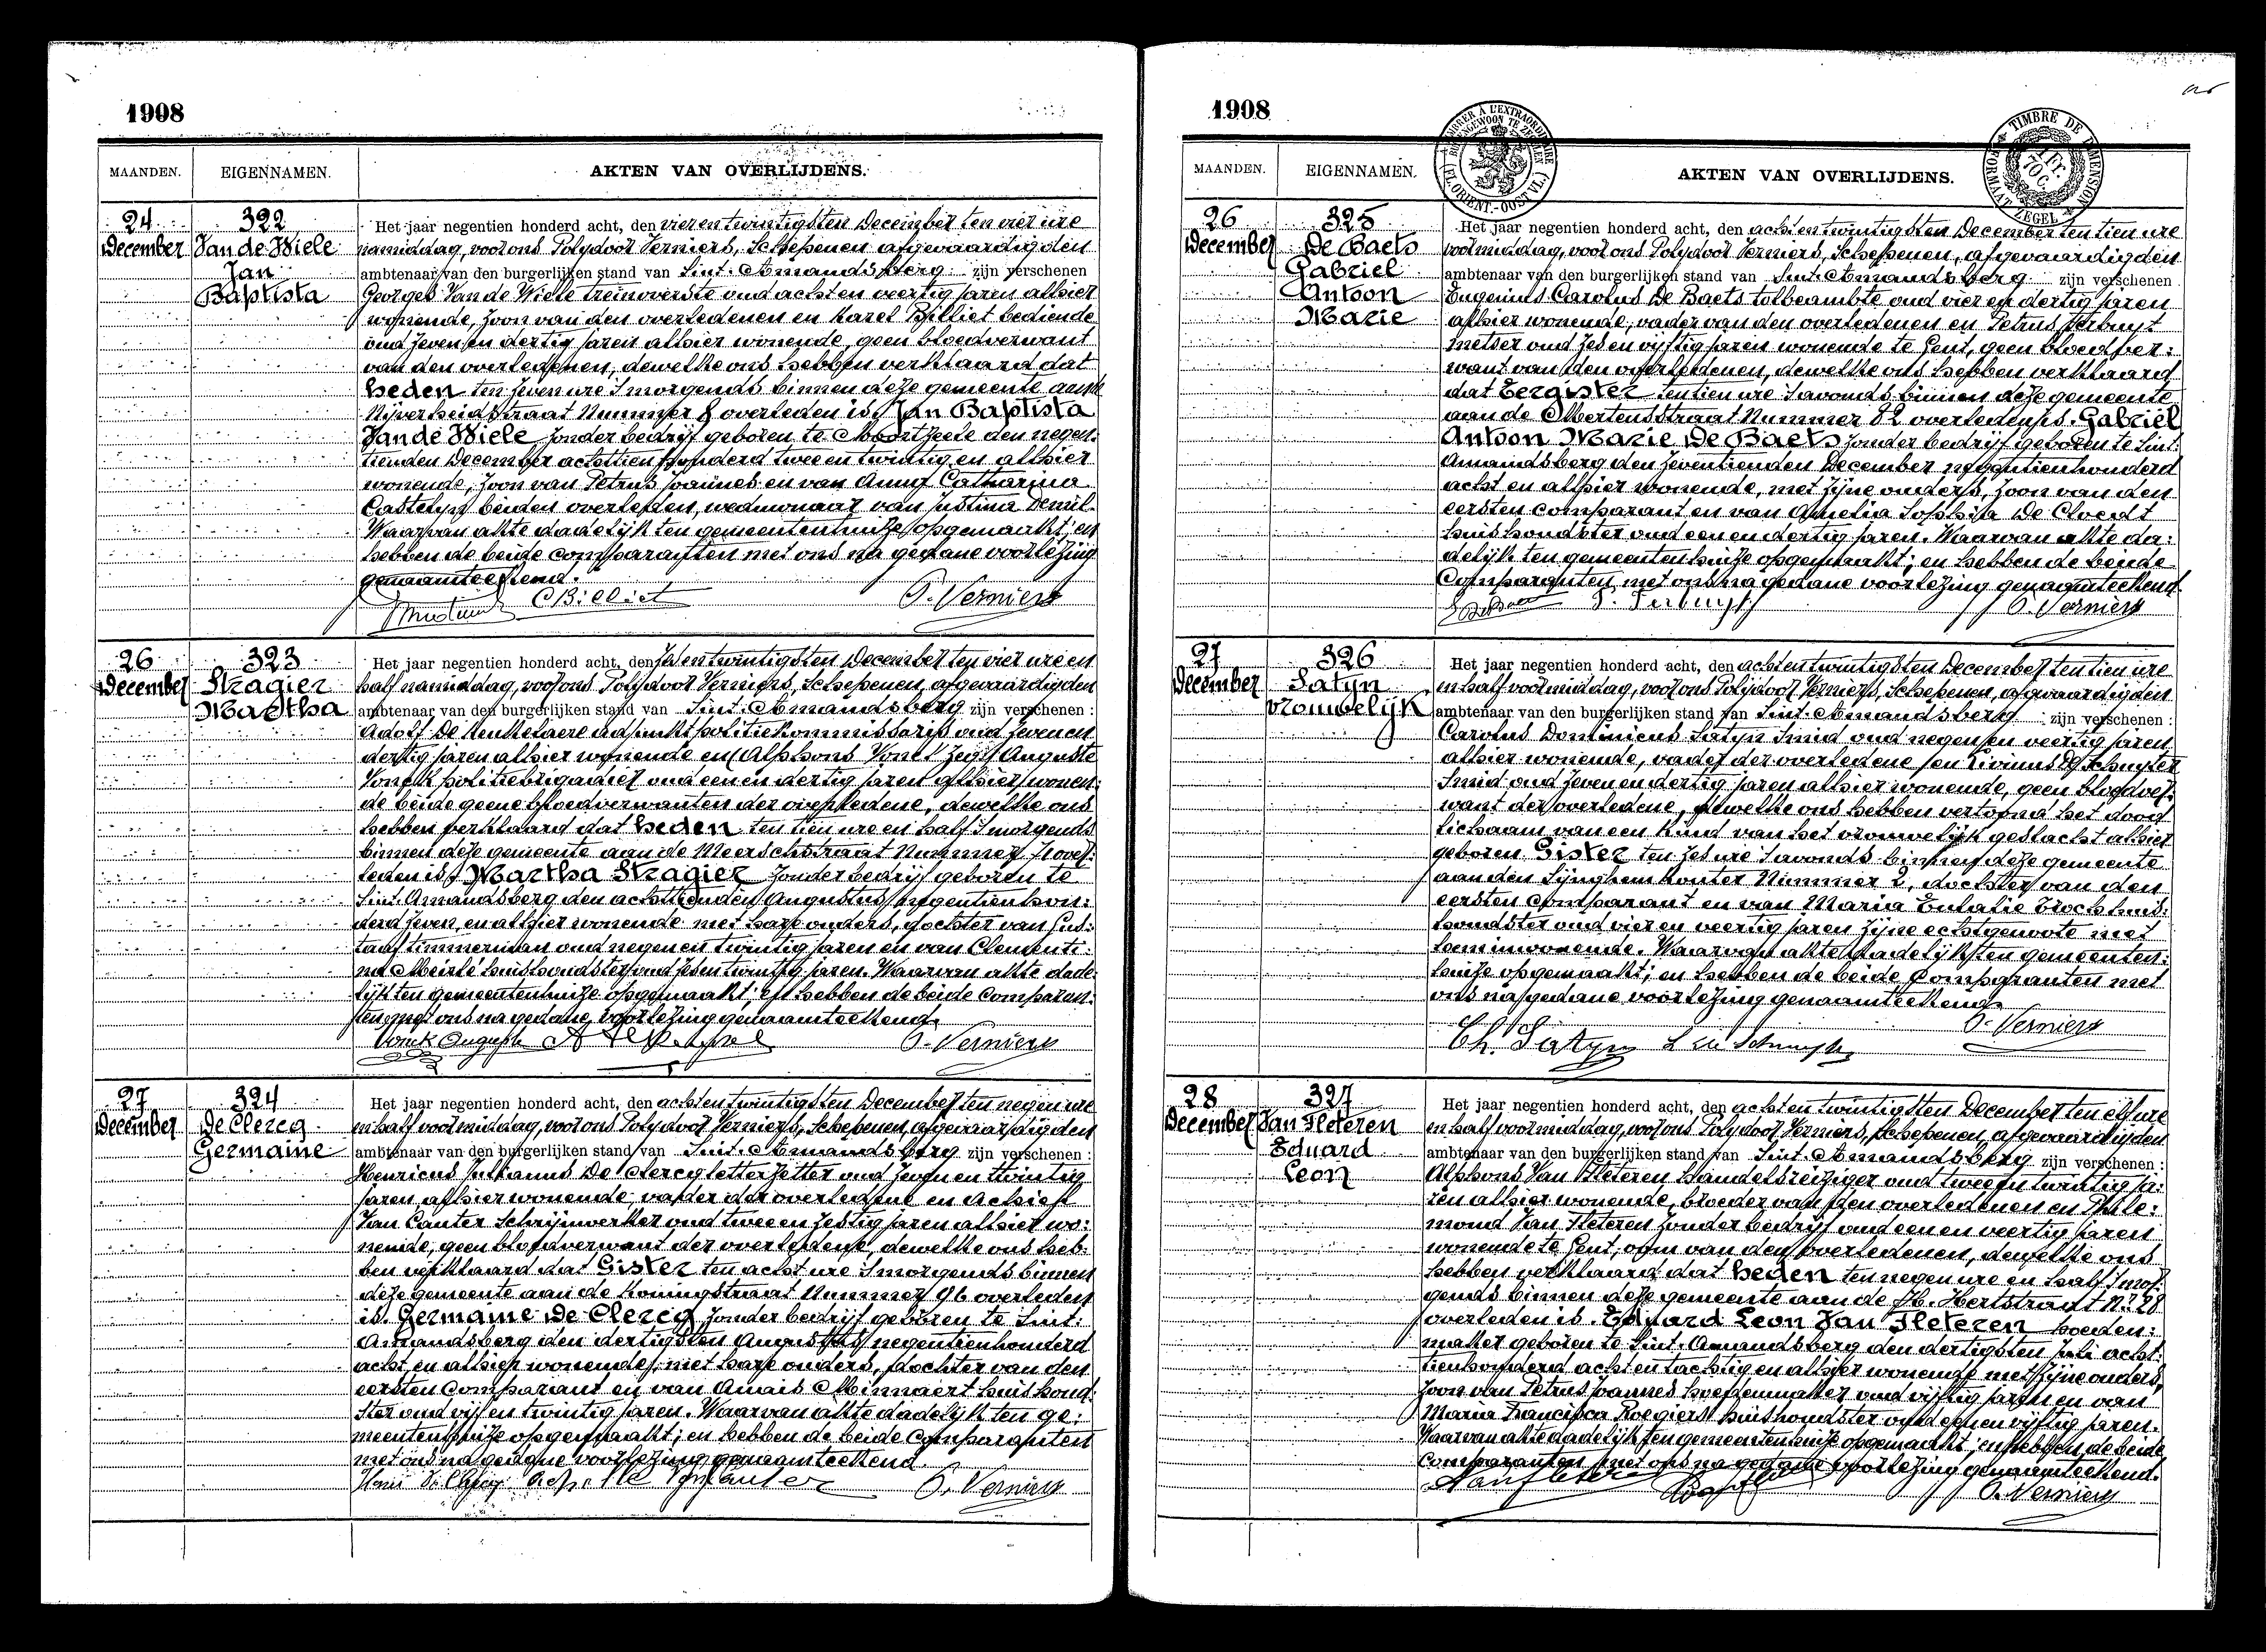 1908
MAANDEN.
EIGENNAMEN.
AKTEN VAN OVERLIJDENS.
24
December
322
Van de Wiele
Jan
Baptista
Het jaar negentien honderd acht, den vier en twintigsten December ten vier ure
namiddag, voor ons Polydoor Verniers, Schepenen afgevaardigden
ambtenaar van den burgerlijken stand van Sint-Amandsberg zijn verschenen
Georges Van de Wiele treinoverste oud acht en veertig jaren alhier
wonende, zoon van den overledenen en Karel Billiet bediende
oud zeven en dertig jaren alhier wonende, geen bloedverwant
van den overledenen, dewelke ons hebben verklaard dat
heden ten zeven ure 's morgends binnen deze gemeente aan de
Nijverheidstraat Nummer 8 overleden is, Jan Baptista
Van de Wiele zonder bedrijf geboren te Moortzeele den negen-
tienden December achttien honderd twee en twintig en alhier
wonende, zoon van Petrus Joannes en van Anna Catharina
Castelyn beiden overleden, weduwnaar van Justina Demil.
Waarvan akte dadelijk ten gemeentenhuize opgemaakt; en
hebben de beide comparanten met ons na gedane voorlezing
genaamteekend.
C Billiet
P. Verniers
26
December
323
Stragier
Martha
Het jaar negentien honderd acht, den zes en twintigsten December ten vier ure en
half namiddag, voor ons Polydoor Verniers, Schepenen, afgevaardigden
ambtenaar van den burgerlijken stand van Sint-Amandsberg zijn verschenen :
Adolf De Keukelaere adjunkt politiekommissaris oud zeven en
dertig jaren alhier wonende en Alphons Vonck zegt Auguste
Vonck politiebrigadier oud een en dertig jaren alhier wonen:
de beide geene bloedverwanten der overledene, dewelke ons
hebben verklaard dat heden ten tien ure en half 's morgends
binnen deze gemeente aan de Meerschstraat Nummer over:
leden is, Martha Stragier zonder bedrijf geboren te
Sint-Amandsberg den achttienden Augustus negentienhon:
derd zeven, en alhier wonende met hare ouders, dochter van Gus:
taaf timmerman oud negen en twintig jaren en van Clementi:
na Meirlé huishoudster oud zes en twintig jaren. Waarvan akte dade:
lijk ten gemeentenhuize opgemaakt; en hebben de beide comparan:
ten met ons na gedane voorlezing genaamteekend.
Vonck Auguste
P. Verniers
27
December
324
De Clercq
Germaine
Het jaar negentien honderd acht, den acht en twintigsten December ten negen ure
en half voormiddag, voor ons Polydoor Verniers, Schepenen, afgevaardigden
ambtenaar van den burgerlijken stand van Sint-Amandsberg zijn verschenen :
Henricus Julianus De Clercq letterzetter oud zeven en twintig
jaren alhier wonende, vader der overledene en Achiel
Van Canter Schrijnwerker oud twee en zestig jaren alhier wo:
nende, geen bloedverwant der overledene, dewelke ons heb:
ben verklaard dat Gister ten acht ure 's morgends binnen
deze gemeente aan de Koningstraat Nummer 96 overleden
is. Germaine De Clercq zonder bedrijf geboren te Sint:
Amandsberg den dertigsten Augustus negentienhonderd
acht, en alhier wonende, met hare ouders, dochter van den
eersten comparant en van Anais Minnaert huishoud:
ster oud vijf en twintig jaren. Waarvan akte dadelijk ten ge:
meentenhuize opgemaakt; en hebben de beide comparanten
met ons na gedane voorlezing genaamteekend.
P. Verniers
1908
MAANDEN.
EIGENNAMEN.
AKTEN VAN OVERLIJDENS.
TIMBRE DE DIMENSION
FORMAATZEGEL
26
December
325
De Baets
Gabriel
Antoon
Marie
Het jaar negentien honderd acht, den acht en twintigsten December ten tien ure
voormiddag, voor ons Polydoor Verniers, Schepenen, afgevaardigden
ambtenaar van den burgerlijken stand van Sint-Amandsberg zijn verschenen
Eugenius Carolus De Baets tolbeambte oud vier en dertig jaren
alhier wonende, vader van den overledenen en Petrus Terbuyt
metser oud zes en vijftig jaren wonende te Gent, geen bloedver:
want van den overledenen, dewelke ons hebben verklaard
dat Eergister ten tien ure 's avonds binnen deze gemeente
aan de Albertusstraat Nummer 82 overleden is. Gabriël
Antoon Marie De Baets zonder bedrijf geboren te Sint:
Amandsberg den zeventienden December negentienhonderd
acht en alhier wonende, met zijne ouders, zoon van den
eersten comparant en van Amelia Sophia De Cloedt
huishoudster oud een en dertig jaren. Waarvan akte da:
delijk ten gemeentenhuize opgemaakt; en hebben de beide
Comparanten met ons na gedane voorlezing genaamteekend.
P. Verniers
27
December
326
Satyn
vrouwelijk
Het jaar negentien honderd acht, den acht en twintigsten December ten tien ure
en half voormiddag, voor ons Polydoor Verniers, Schepenen, afgevaardigden
ambtenaar van den burgerlijken stand van Sint-Amandsberg zijn verschenen :
Carolus Dominicus Satyn Smid oud negen en veertig jaren
alhier wonende, vader der overledene en Livinus De Schuyter
Smid oud zeven en dertig jaren alhier wonende, geen bloedver:
want der overledene, dewelke ons hebben vertoond het dood
lichaam van een kind van het vrouwelijk geslacht alhier
geboren Gister ten zes ure 's avonds binnen deze gemeente
aan den Lijnghemkouter Nummer 2, dochter van den
eersten comparant en van Maria Eulalie Brocks huis:
houdster oud vier en veertig jaren zijne echtgenoote met
hem inwonende. Waarvan akte dadelijk ten gemeenten:
huize opgemaakt; en hebben de beide Comparanten met
ons na gedane voorlezing genaamteekend.
P. Verniers
Ch. Satyn
28
December
327
Van Fleteren
Eduard
Leon
Het jaar negentien honderd acht, den acht en twintigsten December ten elf ure
en half voormiddag, voor ons Polydoor Verniers, Schepenen, afgevaardigden
ambtenaar van den burgerlijken stand van Sint-Amandsberg zijn verschenen :
Alphons Van Fleteren handelsreiziger oud twee en twintig ja:
ren alhier wonende, broeder van den overledenen en Phile:
mond Van Fleteren zonder bedrijf oud een en veertig jaren
wonende te Gent, oom van den overledenen, dewelke ons
hebben verklaard dat heden ten negen ure en half 's mor:
gends binnen deze gemeente aan de H. Hertstraat N° 28
overleden is. Eduard Leon Van Fleteren hoeden:
maker geboren te Sint-Amandsberg den dertigsten Juli acht:
tienhonderd acht en tachtig en alhier wonende met zijne ouders,
zoon van Petrus Joannes hoedenmaker oud vijftig jaren en van
Maria Francisca Roegiers huishoudster oud een en vijftig jaren.
Waarvan akte dadelijk ten gemeentenhuize opgemaakt; en hebben de beide
Comparanten met ons na gedane voorlezing genaamteekend.
P. Verniers